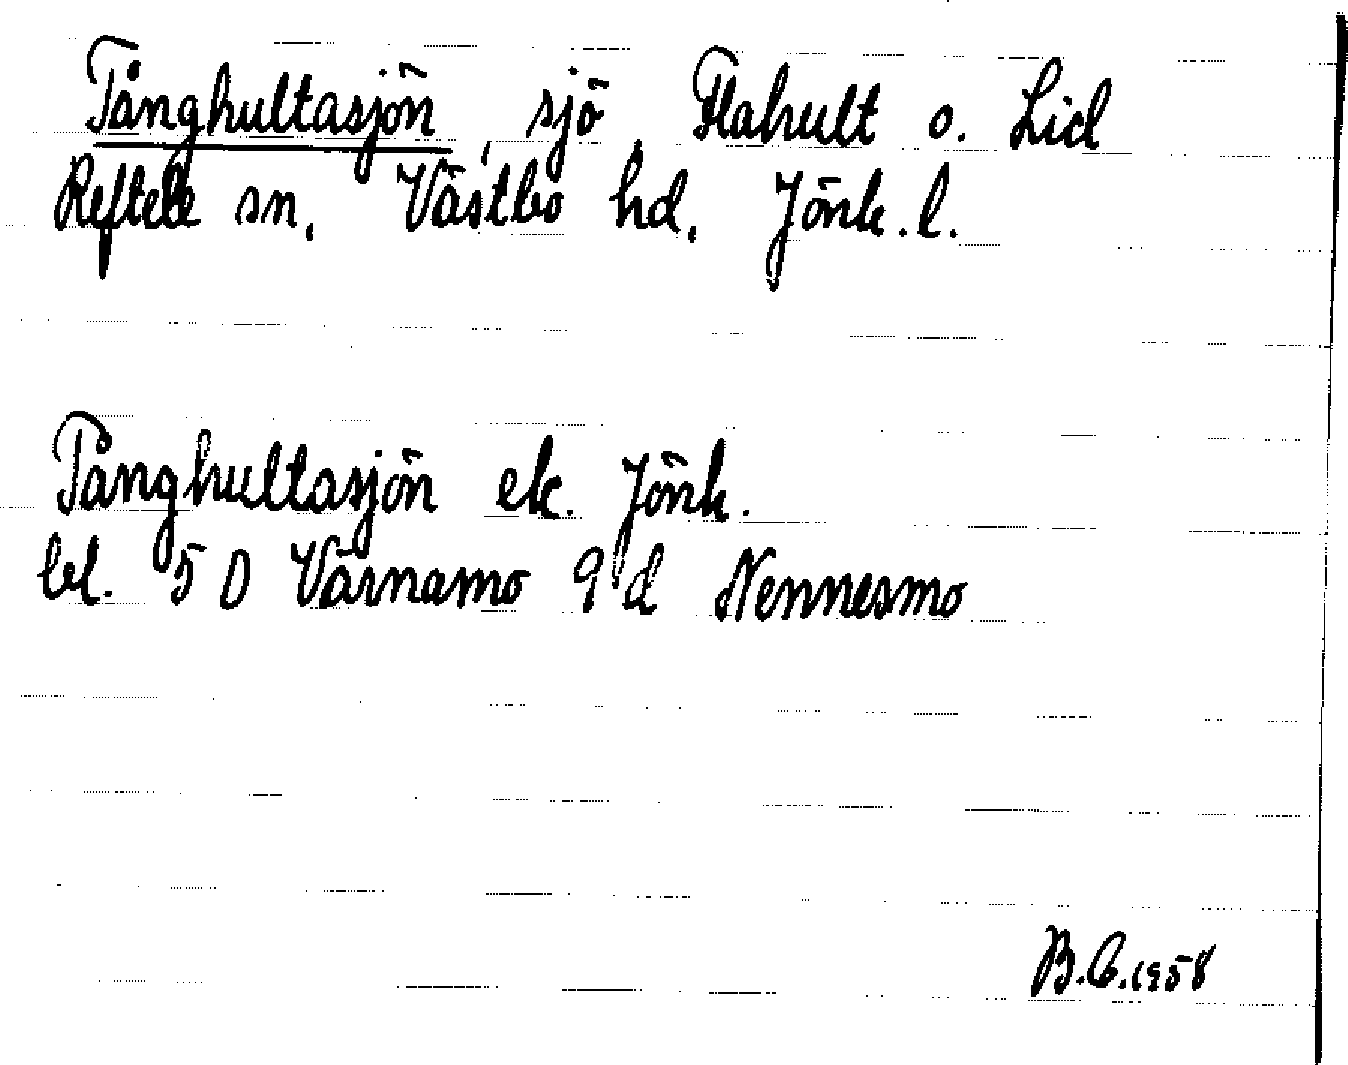 Tånghultasjön, sjö Flahult o. Lid
Reftele sn, Västbo hd, Jönk. l.
Tånghultasjön ek. Jönk.
bl. 5 D Värnamo 9 d Nennesmo
B.C. 1958